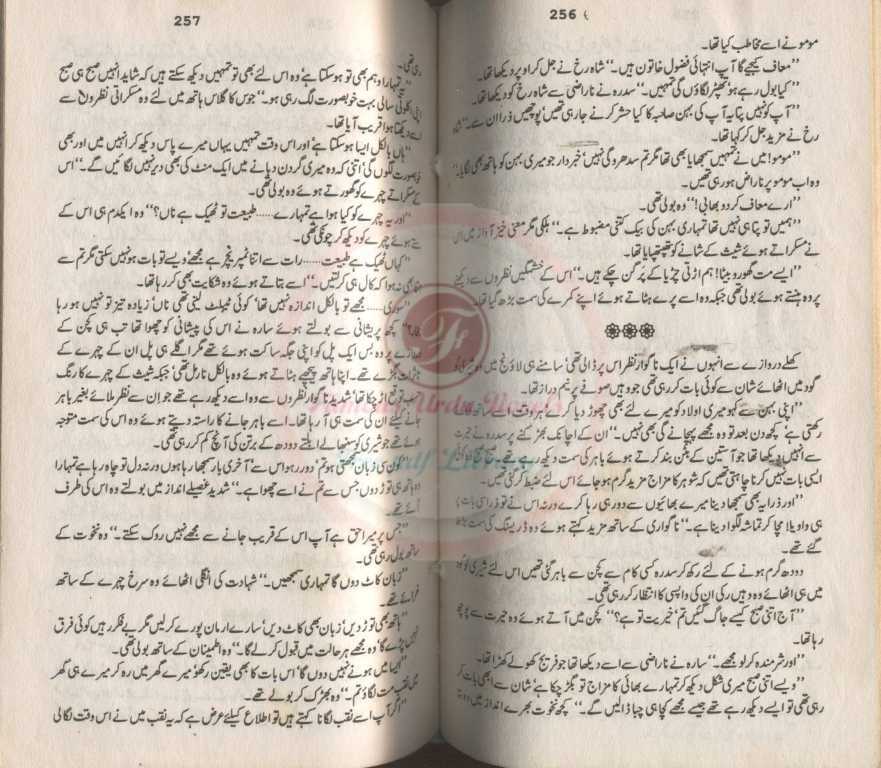 256
مومو نے اسے مخاطب کیا تھا۔
”معاف کیجیے گا آپ انتہائی فضول خاتون ہیں۔“ شاہ رخ نے جل کر اوپر دیکھا تھا۔
”کیا بول رہے ہو، تھپڑ لگاؤں گی تمہیں۔“ سدرہ نے ناراضی سے شاہ رخ کو دیکھا تھا۔
”آپ کو نہیں پتا یہ آپ کی بہن صاحبہ کا کیا حشر کرنے جا رہی تھیں، پوچھیں ذرا ان سے۔“ شاہ
رخ نے مزید جل کر کہا تھا۔
”مومو! میں نے تمہیں سمجھایا بھی تھا مگر تم سدھرو گی نہیں، خبردار جو میری بہن کو ہاتھ بھی لگایا۔“
وہ اب مومو پر ناراض ہو رہی تھیں۔
”ارے معاف کر دو بھابی!“ وہ بولی تھی۔
”ہمیں تو پتا ہی نہیں تھا تمہاری بہن کی بیک کتنی مضبوط ہے۔“ ہلکی مگر معنی خیز آواز میں اس
نے مسکراتے ہوئے شیث کے شانے کو تھپتھپایا تھا۔
”ایسے مت گھورو بیٹا! ہم اڑتی چڑیا کے پر گن چکے ہیں۔“ اس کے خشمگیں نظروں سے دیکھنے
پر وہ ہنستے ہوئے بولی تھی جبکہ وہ اسے پرے ہٹاتے ہوئے اپنے کمرے کی سمت بڑھ گیا تھا۔
کھلے دروازے سے انہوں نے ایک ناگوار نظر اس پر ڈالی تھی، سامنے ہی لاؤنج میں وہ شیری کو
گود میں اٹھائے شان سے کوئی بات کر رہی تھی جو وہیں صوفے پر نیم دراز تھا۔
”اپنی بہن سے کہو میری اولاد کو میرے لئے بھی چھوڑ دیا کرے، ہر وقت اسے ساتھ لگائے
رکھتی ہے، کچھ دن بعد تو وہ مجھے پہچانے گی بھی نہیں۔“ ان کے اچانک بھڑکنے پر سدرہ نے حیرت
سے انہیں دیکھا تھا جو آستین کے بٹن بند کرتے ہوئے باہر کی سمت دیکھ رہے تھے۔ صبح صبح وہ کوئی
ایسی بات نہیں کرنا چاہتی تھیں کہ شوہر کا مزاج مزید گرم ہو جائے اس لئے ضبط کر گئی تھیں۔
”اور ذرا یہ بھی سمجھا دینا میرے بھائیوں سے دور ہی رہا کرے ورنہ اس نے تو ذرا سی بات پر
ہی واویلا مچا کر تماشہ لگوا دینا ہے۔“ ناگواری کے ساتھ مزید کہتے ہوئے وہ ڈریسنگ کی سمت بڑھ
گئے تھے۔
دودھ گرم ہونے کے لئے رکھ کر سدرہ کسی کام سے کچن سے باہر گئی تھیں اس لئے شیری کو گود
میں ہی اٹھائے وہ وہیں رکی ان کی واپسی کا انتظار کر رہی تھی۔
”آج اتنی صبح کیسے جاگ گئیں تم، خیریت تو ہے؟“ کچن میں آتے ہوئے وہ حیرت سے پوچھ
رہا تھا۔
”اور شرمندہ کر لو مجھے۔“ سارہ نے ناراضی سے اسے دیکھا تھا جو فریج کھولے کھڑا تھا۔
”ویسے اتنی صبح میری شکل دیکھ کر تمہارے بھائی کا مزاج تو بگڑ چکا ہے، شان سے ابھی بات کر
رہی تھی تو ایسے دیکھ رہے تھے جیسے مجھے کچا ہی چبا ڈالیں گے۔“ کچھ نخوت بھرے انداز میں وہ بتا
257
رہی تھی۔
”یہ تمہارا وہم بھی تو ہو سکتا ہے، وہ اس لئے بھی تو تمہیں دیکھ سکتے ہیں کہ شاید انہیں صبح ہی صبح
اپنی اکلوتی سالی بہت خوبصورت لگ رہی ہو۔“ جوس کا گلاس ہاتھ میں لئے وہ مسکراتی نظروں سے
اسے دیکھتا ہوا قریب آیا تھا۔
”ہاں بالکل ایسا ہو سکتا ہے، اور اس وقت تمہیں یہاں میرے پاس دیکھ کر انہیں میں اور بھی
خوبصورت لگوں گی، اتنی کہ وہ میری گردن دبانے میں ایک منٹ کی بھی دیر نہیں لگائیں گے۔“ اس
کے مسکراتے چہرے کو گھورتے ہوئے وہ بولی تھی۔
”اور یہ چہرے کو کیا ہوا ہے تمہارے...... طبیعت تو ٹھیک ہے ناں؟“ وہ ایکدم ہی اس کے
ستے ہوئے چہرے کو دیکھ کر چونکی تھی۔
”کہاں ٹھیک ہے طبیعت...... رات سے اتنا ٹمپریچر ہے مجھے، ویسے تو بات ہو نہیں سکتی مگر تم سے
اتنا بھی نہ ہوا کہ کال ہی کر لیتیں۔“ اسے بتاتے ہوئے وہ شکایت بھی کر رہا تھا۔
”سوری...... مجھے تو بالکل اندازہ نہیں تھا، کوئی ٹیبلٹ لینی تھی ناں، زیادہ تیز تو نہیں ہو رہا
بخار؟“ کچھ پریشانی سے بولتے ہوئے سارہ نے اس کی پیشانی کو چھوا تھا تب ہی کچن کے
دروازے پر وہ بس ایک پل کو اپنی جگہ ساکت ہوئے تھے مگر اگلے ہی پل ان کے چہرے کے
تاثرات بگڑے تھے۔ اپنا ہاتھ پیچھے ہٹاتے ہوئے وہ بالکل نارمل تھی، جبکہ شیث کے چہرے کا رنگ
سب توقع اڑ چکا تھا، شدید ناگوار نظروں سے وہ اسے دیکھ رہے تھے جو ان سے نظر ملائے بغیر باہر
جانے کیلئے ان کی سمت ہی آ رہا تھا۔ اسے باہر جانے کا راستہ دیتے ہوئے وہ اس کی سمت متوجہ
ہوئے تھے جو شیری کو سنبھالے ابلتے دودھ کے برتن کی آنچ کم کر رہی تھی۔
”کون سی زبان سمجھتی ہو تم، دور رہو اس سے، آخری بار سمجھا رہا ہوں ورنہ دل تو چاہ رہا ہے تمہارا
وہ ہاتھ ہی توڑ دوں جس سے تم نے اسے چھوا ہے۔“ شدید غصیلے انداز میں بولتے وہ اس کی طرف
آئے تھے۔
”جس پر میرا حق ہے آپ اس کے قریب جانے سے مجھے نہیں روک سکتے۔“ وہ نخوت کے
ساتھ بول رہی تھی۔
”زبان کاٹ دوں گا تمہاری سمجھیں۔“ شہادت کی انگلی اٹھائے وہ سرخ چہرے کے ساتھ
غرائے تھے۔
”ہاتھ بھی توڑ دیں، زبان بھی کاٹ دیں، سارے ارمان پورے کر لیں مگر بے فکر رہیں کوئی فرق
نہیں پڑے گا، وہ مجھے ہر حالت میں قبول کر لے گا۔“ وہ اطمینان کے ساتھ بولی تھی۔
”ایسا میں ہونے نہیں دوں گا، اس بات کا بھی یقین رکھو، میرے گھر میں رہ کر میرے ہی گھر
میں نقب مت لگاؤ تم۔“ وہ بھڑک کر بولے تھے۔
”اگر آپ اسے نقب لگانا کہتے ہیں تو اطلاع کیلئے عرض ہے کہ یہ نقب میں نے اس وقت لگالی